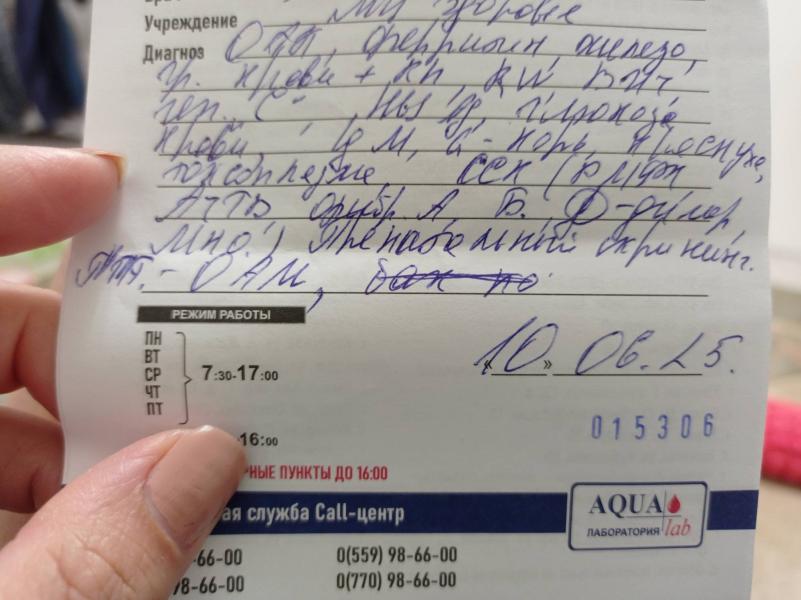 Учреждение МЦ Здоровье
Диагноз ОАК, ферритин, железо,
гр. крови + RH RW ВИЧ
геп. "С", HbsAg, глюкоза
крови, IgM, G - корь, краснуха,
токсоплазма, ССК (РМФК
АЧТВ фибр. А, Б, Д-димер,
МНО) Пренатальный скрининг.
- ОАМ,
РЕЖИМ РАБОТЫ
ПН
ВТ
СР
ЧТ
ПТ
7:30-17:00
16:00
РНЫЕ ПУНКТЫ ДО 16:00
«10» 06.25.
015306
ая служба Call-центр
AQUA lab
ЛАБОРАТОРИЯ
-66-00 0(559) 98-66-00
98-66-00 0(770) 98-66-00